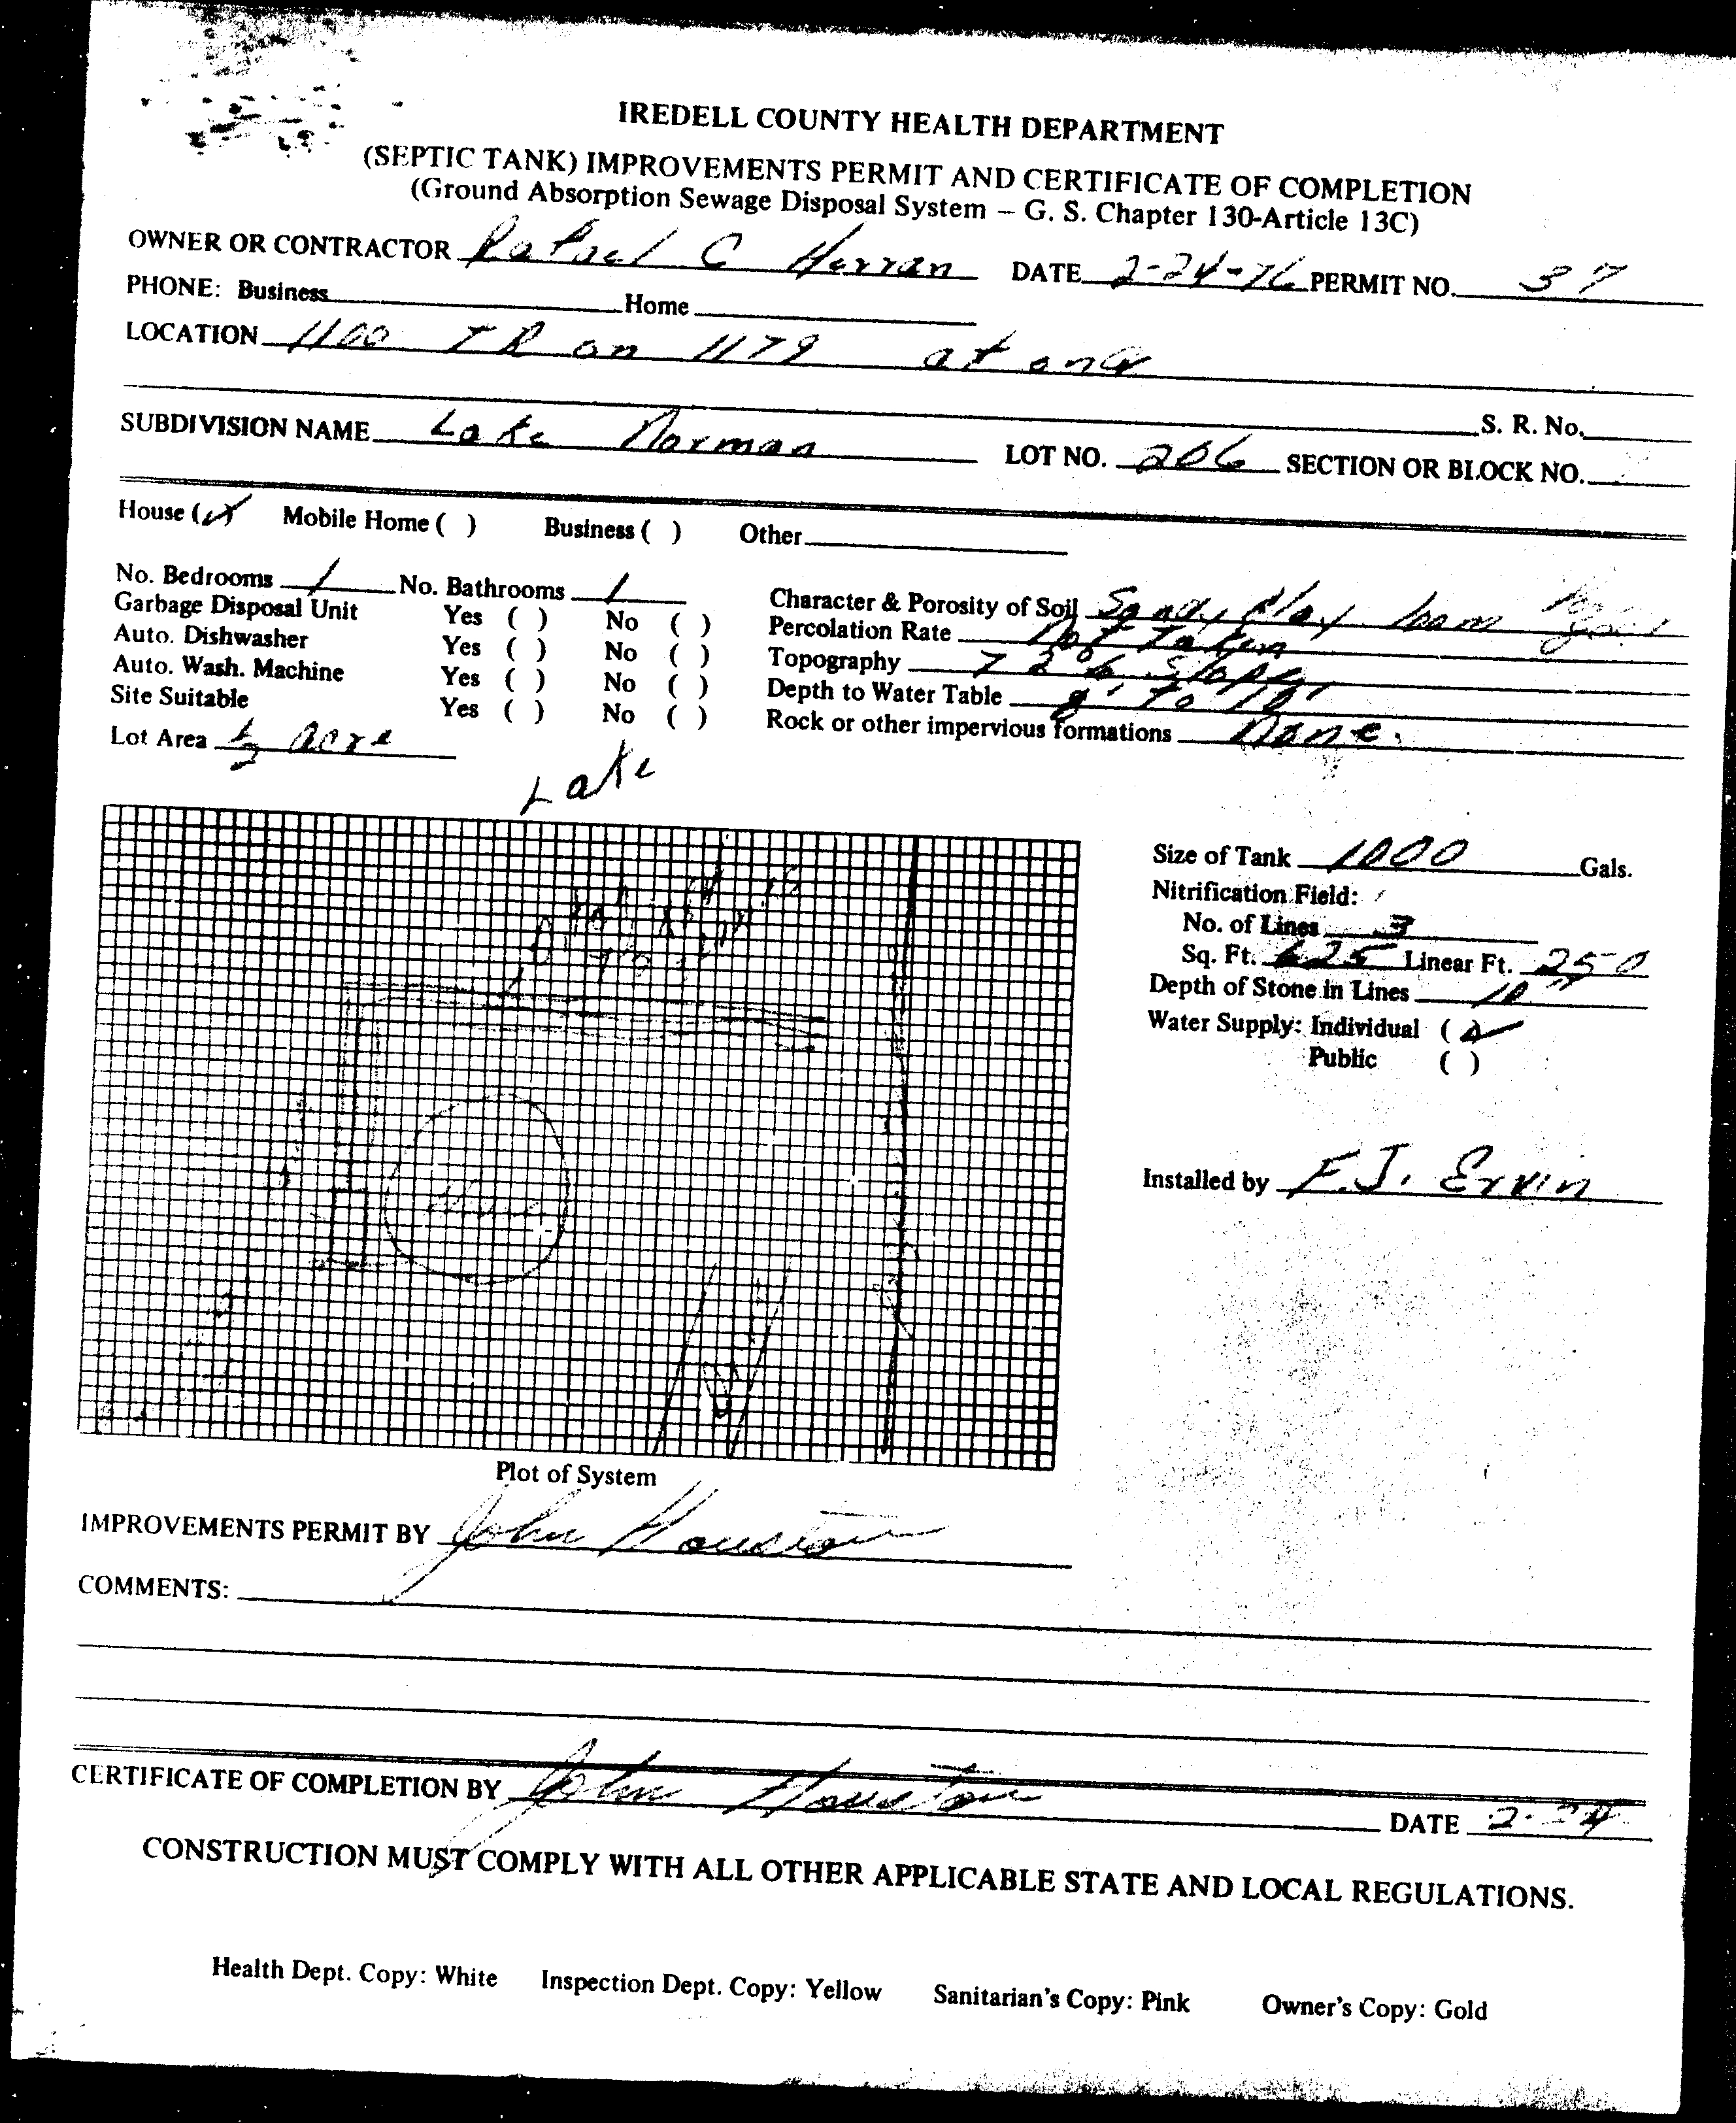 IREDELL COUNTY HEALTH DEPARTMENT
(SEPTIC TANK) IMPROVEMENTS PERMIT AND CERTIFICATE OF COMPLETION
(Ground Absorption Sewage Disposal System – G. S. Chapter 130-Article 13C)
OWNER OR CONTRACTOR Rafael C Herran DATE 2-24-76 PERMIT NO. 37
PHONE: Business Home
LOCATION 1100 TR on 1179 at end
S. R. No.
SUBDIVISION NAME Lake Norman LOT NO. 206 SECTION OR BLOCK NO.
House (✓) Mobile Home ( ) Business ( ) Other
No. Bedrooms 1 No. Bathrooms 1 Character & Porosity of Soil Sandy Clay loam
Garbage Disposal Unit Yes ( ) No ( ) Percolation Rate Not Taken
Auto. Dishwasher Yes ( ) No ( ) Topography 7 2% Slope
Auto. Wash. Machine Yes ( ) No ( ) Depth to Water Table 8' to 10'
Site Suitable Yes ( ) No ( ) Rock or other impervious formations None.
Lot Area ½ acre
Lake
Size of Tank 1000 Gals.
Nitrification Field:
No. of Lines 3
Sq. Ft. 625 Linear Ft. 250
Depth of Stone in Lines 10"
Water Supply: Individual (✓)
Public ( )
Installed by F.J. Ervin
Plot of System
IMPROVEMENTS PERMIT BY John Houston
COMMENTS:
CERTIFICATE OF COMPLETION BY John Houston DATE 2-24
CONSTRUCTION MUST COMPLY WITH ALL OTHER APPLICABLE STATE AND LOCAL REGULATIONS.
Health Dept. Copy: White Inspection Dept. Copy: Yellow Sanitarian's Copy: Pink Owner's Copy: Gold